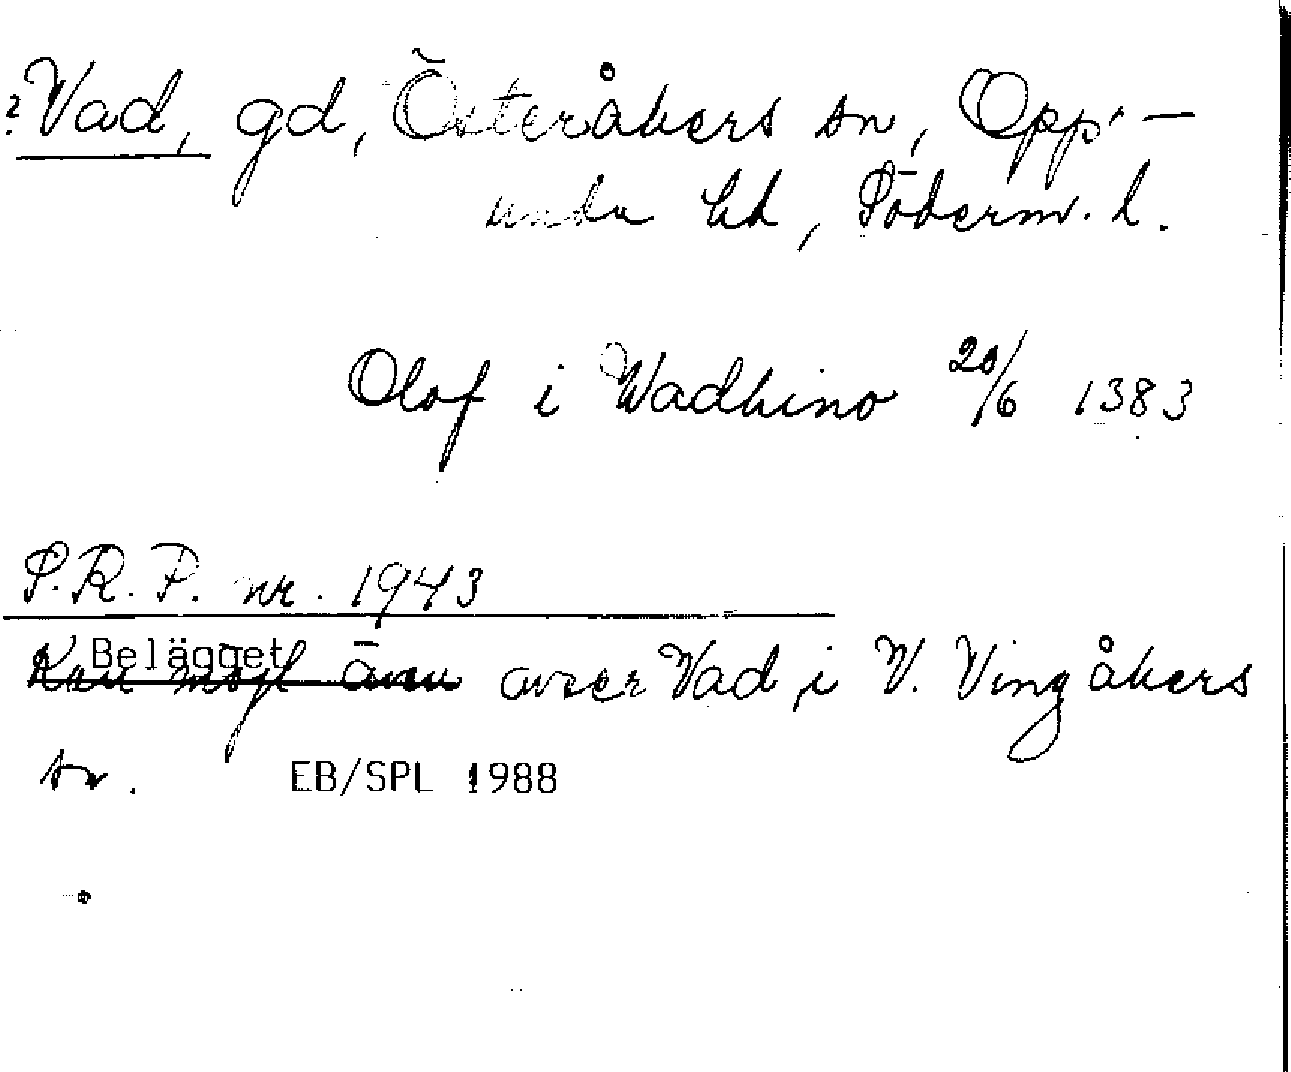 ? Vad, gd, Österåkers sn, Opp-
unda hd, Söderm. l.
Olof i Wadhino 20/6 1383
S.R.P. nr. 1943
Belägget
Kan möjl även avser Vad, i V. Vingåkers
sn. EB/SPL 1988